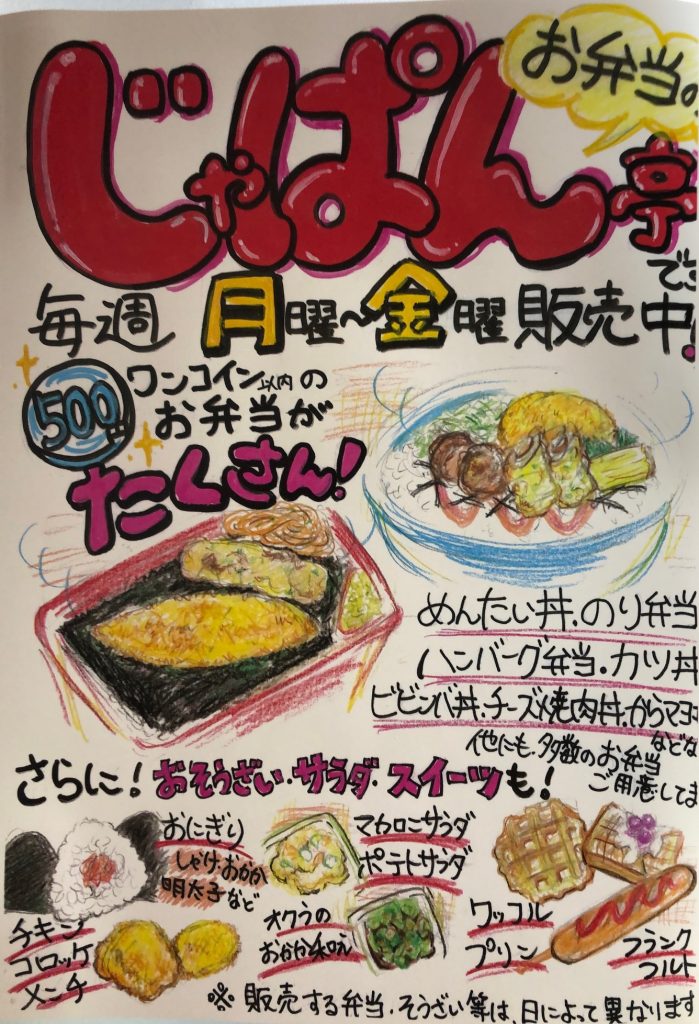 お弁当の
じゃぱん亭
で、
毎週 月曜〜金曜 販売中!
500円
ワンコイン以内の
お弁当が
たくさん!
めんたい丼、のり弁当
ハンバーグ弁当・カツ丼
ビビンバ丼、チーズ焼肉丼、からマヨ
などな
他にも、多数のお弁当
ご用意してま
さらに! おそうざい・サラダ・スイーツも!
おにぎり
しゃけ・おかか
明太子など
マカロニサラダ
ポテトサラダ
チキン
コロッケ
メンチ
オクラの
おかか和え
ワッフル
プリン
フランク
フルト
※販売する弁当・そうざい等は、日によって異なります